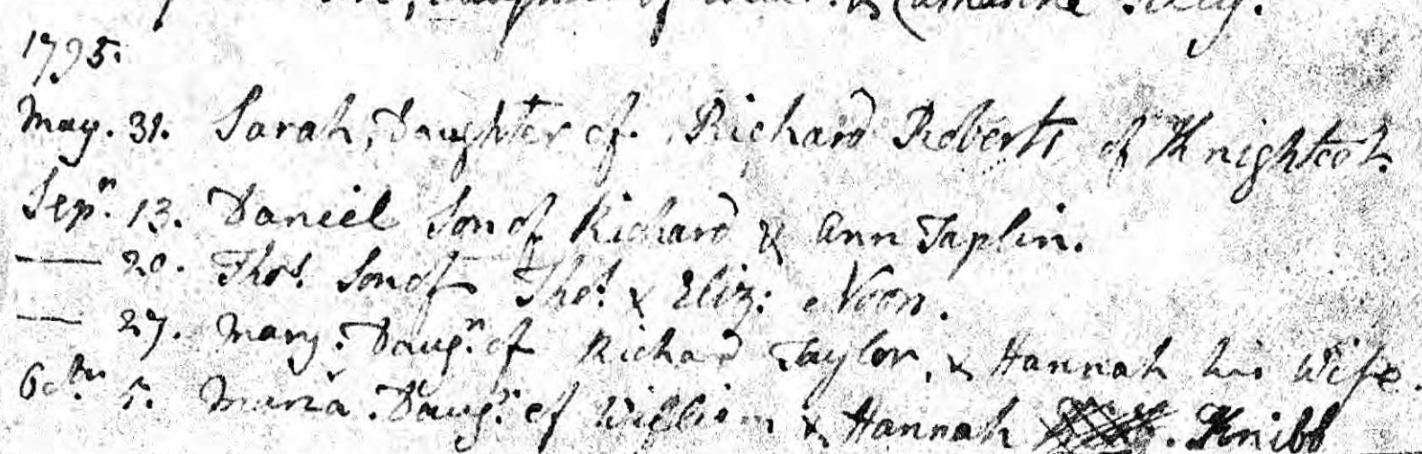 daughter of & Catharine
1795.
May. 31. Sarah, Daughter of Richard Roberts of Knightcot.
Sepr. 13. Daniel Son of Richard & Ann Taplin.
— 20. Thos. Son of Thos. & Eliz: Noon.
— 27. Mary. Daugr. of Richard Taylor, & Hannah his Wife.
Octbr 5. Maria. Daugr. of William & Hannah Knibb